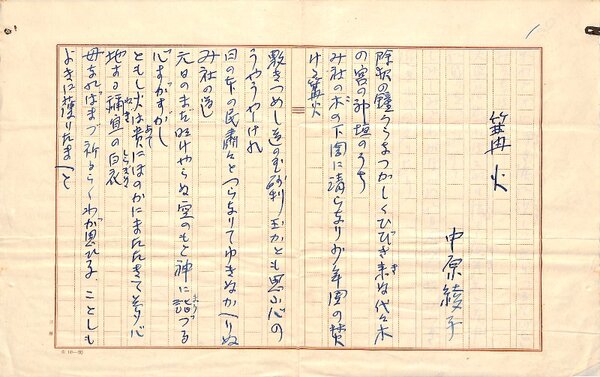 篝火
中原綾子
除夜の鐘うらなつかしくひびき来ぬ代々木
の宮の神垣のうち
み社の木の下闇に清らなり少年団の焚
ける篝火
敷きつめし道の玉砂利玉かとも思ふ心の
うやうやしけれ
日の本の民粛々とつらなりてゆきぬかへりぬ
み社の道
元日のまだ明けやらぬ空のもと神に詣づる
心すがすがし
ともし火は貴にほのかにまたたきて夢心
地する禰宜の白衣
母なればまづ祈るらくわが思ふ子ことしも
よきに護りたまへと